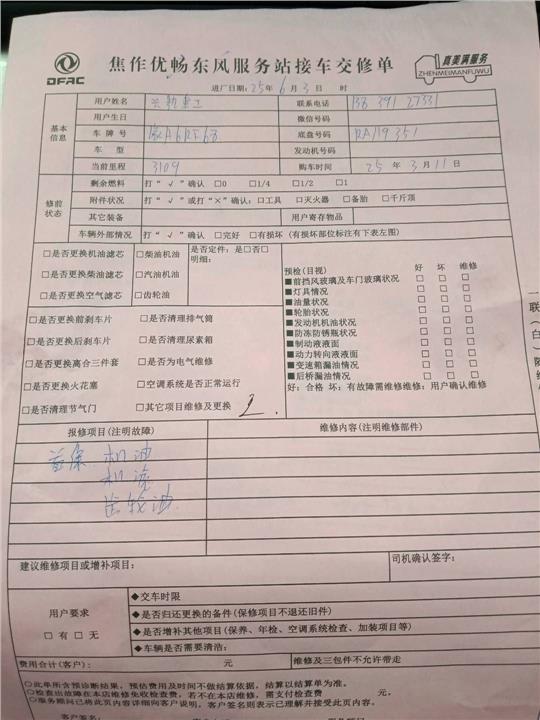 DFAC
焦作优畅东风服务站接车交修单
真美满服务
ZHENMEIMANFUWU
进厂日期:25年6月3日 时
基本信息
用户姓名 联系电话 138 391 27331
用户生日 微信号码
车牌号 底盘号码 RA119351
车型 发动机号码
当前里程 3109 购车时间 25年3月11日
修前状态
剩余燃料 打“√”确认 □0 □1/4 □1/2 □1
附件状况 打“√”或打“×”确认:□工具 □灭火器 □备胎 □千斤顶
其它装备 用户寄存物品
车辆外部情况 打“√”确认 □完好 □有损坏(有损坏部位标注有下表左图)
□是否更换机油滤芯 □柴油机油 是否定件:是□否□
明细:
□是否更换柴油滤芯 □汽油机油
□是否更换空气滤芯 □齿轮油
□是否更换前刹车片 □是否清理排气筒
□是否更换后刹车片 □是否清理尿素箱
□是否更换离合三件套 □是否为电气维修
□是否更换火花塞 □空调系统是否正常运行
□是否清理节气门 □其它项目维修及更换
预检(目视) 好 坏 维修
■前挡风玻璃及车门玻璃状况 □ □ □
■灯具情况 □ □ □
■油量状况 □ □ □
■轮胎状况 □ □ □
■发动机机油状况 □ □ □
■防冻防锈瓶状况 □ □ □
■制动液液面 □ □ □
■动力转向液液面 □ □ □
■变速箱漏油情况 □ □ □
■后桥漏油情况 □ □ □
好:合格 坏:有故障需维修维修:用户确认维修
报修项目(注明故障) 维修内容(注明维修部件)
首保 机油
机滤
齿轮油
建议维修项目或增补项目: 司机确认签字:
用户要求
□有□无
◆交车时限
◆是否归还更换的备件(保修项目不退还旧件)
◆是否增补其他项目(保养、年检、空调系统检查、加装项目等)
◆车辆是否需要清浩:
费用合计(客户): 元 维修及三包件不允许带走
○此单所含预诊断结果,预估费用及时间不做结算依据,结算以结算单为准。
○检查出故障在本店维修免收检查费,若不在本店维修,需支付检查费 元。
○服务顾问已将此页内容详细向客户说明,客户签名则表示已理解并接受此页内容。
客户签名: